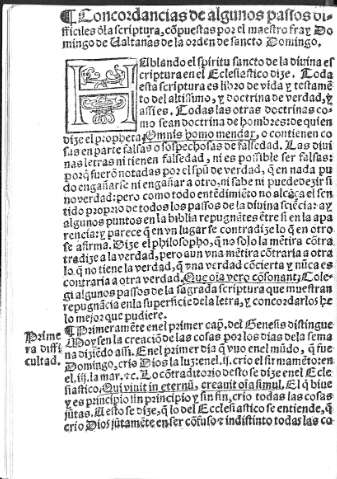 ¶Concordancias de algunos passos di-
fficiles dela scriptura, cõpuestas por el maestro fray Do
mingo de Ualtanas de la orden de sancto Domingo,
HAblando el spiritu sancto de la divina es
criptura en el Ecclesiastico dize. Toda
esta scriptura es libro de vida y testamẽ
to del altissimo, y doctrina de verdad, y
assi es. Todas las otras doctrinas co-
mo sean doctrina de hombres: de quien
dize el propheta, Omnis homo mendax, o contienen co
sas en parte falsas o sospechosas de falsedad. Las divi
nas letras ni tienen falsedad, ni es possible ser falsas:
porq̃ fuerõ notadas por el spũ de verdad, q̃ en nada pu
do engañarse ni engañar a otro, ni sabe ni puede dezir si
no verdad: pero como todo entẽdimiẽto no alcãça el sen
tido proprio de todos los passos de la divina sciẽcia: ay
algunos puntos en la biblia repugnãtes ẽtre si en la apa
rencia: y parece q̃ en vn lugar se contradize lo q̃ en otro
se afirma. Dize el philosopho, q̃ no solo la mẽtira cõtra
tradize a la verdad, pero aun vna mẽtira cõtraria a otra
lo q̃ no tiene la verdad, q̃ vna verdad cõcierta y nũca es
contraria a otra verdad. Que oĩa vero cõsonant: Cole-
gi algunos passos de la sagrada scriptura que muestran
repugnãcia en la superficie de la letra, y concordarlos he
lo mejor que pudiere.
Prime
ra diffi
cultad.
¶Primeramẽte en el primer cap. del Genesis distingue
Moysen la creaciõ de las cosas por los dias de la sema
na diziẽdo assi. En el primer dia q̃ vuo en el mũdo, q̃ fue
Domingo, crio Dios la luz: en el .ij. crio el firmamẽto: en
el .iij. la mar. &c. Lo cõtradictorio desto se dize en el Ecle
siastico, Qui vivit in eternũ, creauit oĩa simul. El q̃ biue
y es principio sin principio y sin fin, crio todas las cosas
jũtas. A esto se dize, q̃ lo del Ecclesiastico se entiende, q̃
crio Dios jũtamẽte en ser cõfuso & indistinto todas las co-